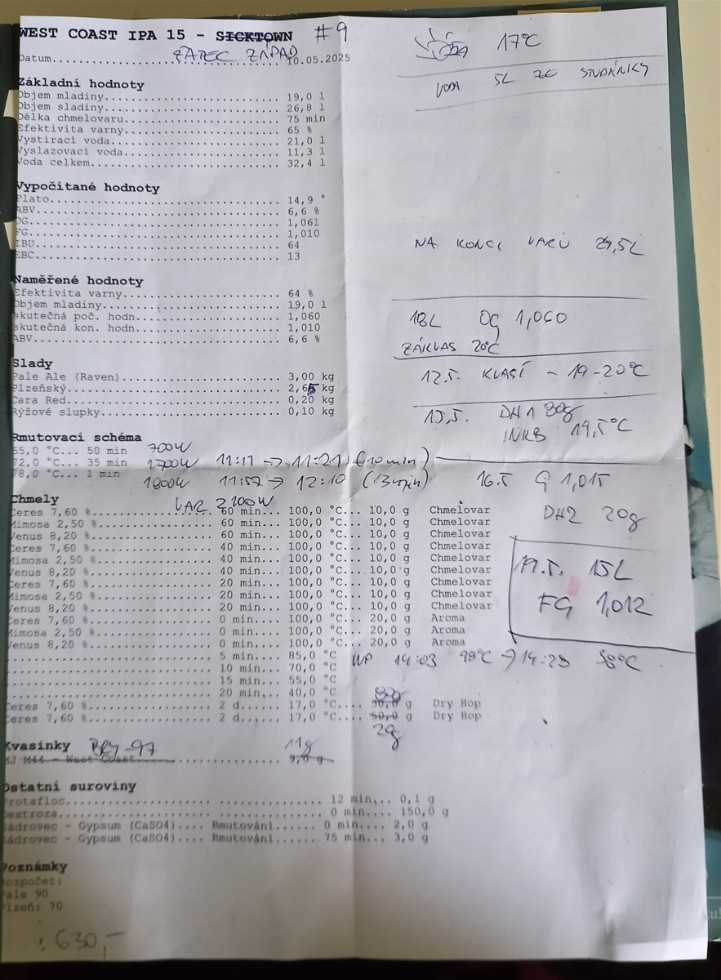 WEST COAST IPA 15 - SICKTOWN #9
ŽATEC ZÁPAD
Datum 10.05.2025
17°C
VODA 5L ZE STUDÁNKY
Základní hodnoty
Objem mladiny 19,0 l
Objem sladiny 26,8 l
Délka chmelovaru 75 min
Efektivita varny 65 %
Vystírací voda 21,0 l
Vyslazovací voda 11,3 l
Voda celkem 32,4 l
Vypočítané hodnoty
Plato 14,9 °
ABV 6,6 %
OG 1,061
FG 1,010
IBU 64
EBC 13
NA KONCI VARU 24,5L
Naměřené hodnoty
Efektivita varny 64 %
Objem mladiny 19,0 l
skutečná poč. hodn. 1,060
skutečná kon. hodn. 1,010
ABV 6,6 %
18L OG 1,060
ZÁKVAS 20°C
Slady
Pale Ale (Raven) 3,00 kg
Plzeňský 2,65 kg
Cara Red 0,20 kg
Rýžové slupky 0,10 kg
12.5. KVASÍ ~ 19-20°C
15.5. DH1 80g
19,5°C
Rmutovací schéma
55,0 °C... 50 min 700W
72,0 °C... 35 min 1700W 11:11 → 11:21 (10min)
78,0 °C... 1 min 1800W 11:57 → 12:10 (13min)
16.5 G 1,015
DH2 20g
Chmely VAR 2100W
Ceres 7,60 % 60 min... 100,0 °C... 10,0 g Chmelovar
Mimosa 2,50 % 60 min... 100,0 °C... 10,0 g Chmelovar
Venus 8,20 % 60 min... 100,0 °C... 10,0 g Chmelovar
Ceres 7,60 % 40 min... 100,0 °C... 10,0 g Chmelovar
Mimosa 2,50 % 40 min... 100,0 °C... 10,0 g Chmelovar
Venus 8,20 % 40 min... 100,0 °C... 10,0 g Chmelovar
Ceres 7,60 % 20 min... 100,0 °C... 10,0 g Chmelovar
Mimosa 2,50 % 20 min... 100,0 °C... 10,0 g Chmelovar
Venus 8,20 % 20 min... 100,0 °C... 10,0 g Chmelovar
Ceres 7,60 % 0 min... 100,0 °C... 20,0 g Aroma
Mimosa 2,50 % 0 min... 100,0 °C... 20,0 g Aroma
Venus 8,20 % 0 min... 100,0 °C... 20,0 g Aroma
15L
FG 1,012
5 min... 85,0 °C WP 14:03 98°C → 14:28 58°C
10 min... 70,0 °C
15 min... 55,0 °C
20 min... 40,0 °C
80
Ceres 7,60 % 2 d... 17,0 °C... 50,0 g Dry Hop
Ceres 7,60 % 2 d... 17,0 °C... 50,0 g Dry Hop
20
Kvasinky BRY-97 11g
MJ M44 - West Coast 9,0 g
Ostatní suroviny
Protafloc 12 min... 0,1 g
Dextroza 0 min... 150,0 g
Sádrovec - Gypsum (CaSO4).... Rmutování 0 min... 2,0 g
Sádrovec - Gypsum (CaSO4).... Rmutování 75 min... 3,0 g
Poznámky
Rozpočet:
Pale 90
Plzeň: 70
: 630,-